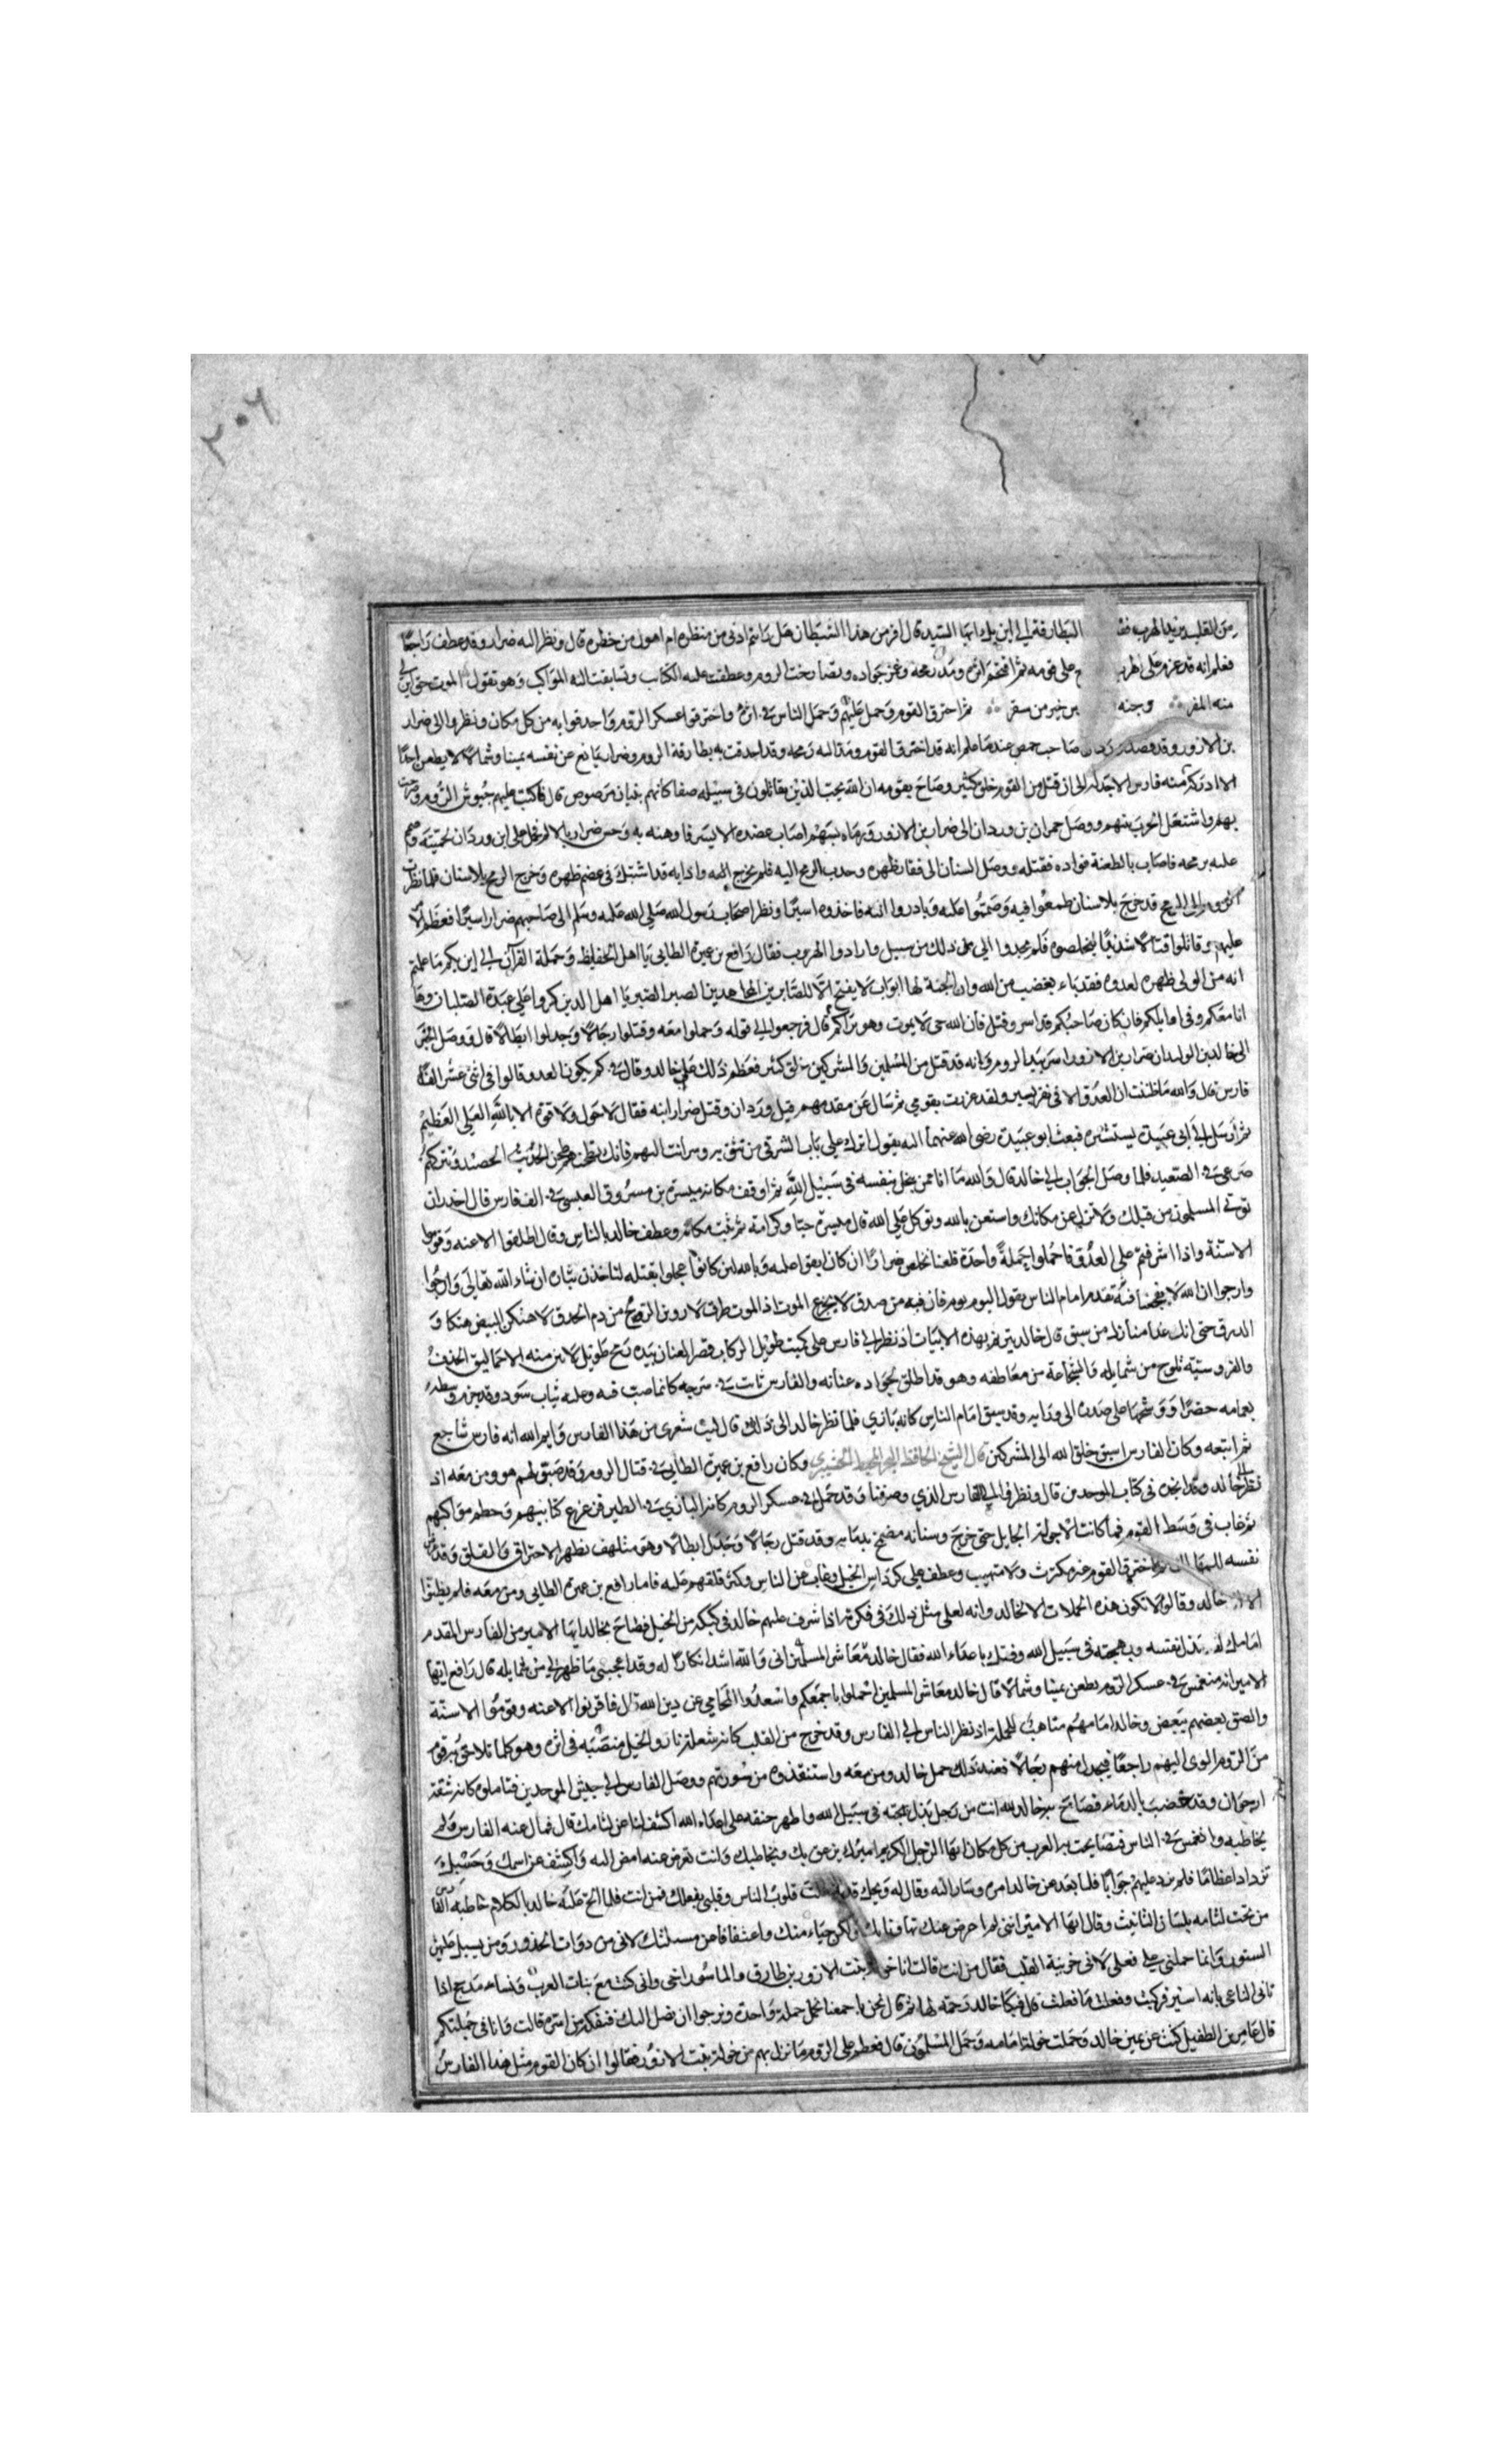 ٢٠٦
من القلب يريد الهرب فقـ البطارقة الى اين يا ايها السيد قال افر من هذا الشيطان هل رايتم ادنى من منظره ام اهول من خطره قال ونظر اليه ضرار وقد عطف راجعا
فعلم انه قد عزم على الهرب على قومه ثم اقتحم اثره ومد رمحه وغمز جواده وتصارخت الروم وعطفت عليه الكتائب وتسابقت اليه المواكب وهو يقول الموت حق اين لي
منه المفر وجنه خير من سقر ثم اخترق القوم وحمل عليهم وحمل الناس في اثره واخترقوا عسكر الروم واحدقوا به من كل مكان ونظروا الى ضرار
بن الازور وقد قصد صاحب حمص عندما علم انه قد اخترق القوم ومد اليه رمحه وقد احدقت به بطارقة الروم وضرار يمانع عن نفسه يمينا وشمالا لا يطعن احدا
الا اباده فارس الا جندله الى ان قتل من القوم خلق كثير وصاح بقومه ان الله يحب الذين يقاتلون في سبيله صفا كانهم بنيان مرصوص قال فاكب عليهم جيوش الروم
بهم واشتعل الحرب بينهم ووصل حمران بن وردان الى ضرار بن الازور ورماه بسهم اصاب عضده الايسر فاوهنه به وحس ضرار بالالم فحمل على ابن وردان
عليه برمحه فاصاب بالطعنة فواده فقتله ووصل السنان الى فقار ظهره وجذب الرمح اليه فلم يخرج اليه واذا به قد اشتبك في عضم ظهره وخرج الرمح بلا سنان فلما نظرت
الروم الى الرمح قد خرج بلا سنان طمعوا فيه وصمموا عليه وبادروا اليه فاخذوه اسيرا ونظر اصحاب رسول الله صلى الله عليه وسلم الى صاحبهم ضرار اسيرا فعظم
عليهم وقاتلوا قتالا شديدا ليخلصوه فلم يجدوا الى ذلك من سبيل وارادوا الهروب فقال رافع بن عميرة الطايى يا اهل الحفايظ وحملة القران الى اين بكم ما علمتم
انه من الولى ظهره لعدوه فقد باء بغضب من الله وان الجنة لها ابواب لا يفتح الا للصابرين المجاهدين الصبر الصبر يا اهل الدين كروا على عبدة الصلبان وها
انا معكم وفي اوايلكم فان كان صاحبكم قد اسر وقتل فان الله حي لا يموت وهو يراكم قال فرجعوا الى قوله وحملوا معه وقتلوا رجالا وجدلوا ابطالا قال ووصل الخبر
الى خالد بن الوليد ان ضرار بن الازور اسر بيد الروم وانه قد قتل من المسلمين والمشركين خلق كثير فعظم ذلك على خالد وقال في كم يكون العدو قالوا في اثنى عشر الف
فارس قال والله ما ظننت ان العدو الا في نفر يسير ولقد غررت بقومي ثم سال عن مقدمهم قيل وردان وقتل ضرار ابنه فقال لا حول ولا قوة الا بالله العلي العظيم
ثم ارسل الى ابي عبيدة يستشيره فبعث ابو عبيدة رضي الله عنهما اليه يقول اترك على باب الشرقي من تثق به وسر انت اليهم فانك تطحنهم طحن الحصيد وتتركهم
صرعى في الصعيد فلما وصل الجواب الى خالد قال والله ما انا ممن يبخل بنفسه في سبيل الله ثم اوقف مكانه ميسرة بن مسروق العبسي في الف فارس قال احذر ان
توتى المسلمون من قبلك ولا تزل عن مكانك واستعن بالله وتوكل على الله قال ميسرة حبا وكرامة ثم ثبت مكانه وعطف خالد بالناس وقال اطلقوا الاعنه وقوموا
الاسنة واذا اشرفتم على العدو فاحملوا حملة واحدة فلعلنا نخلص ضرارا ان كان ابقوا عليه وبالله لين كانوا عجلوا بقتله لناخذن بثاره ان شاء الله تعالى وارجوا
وارجوا ان الله لا يفجعنا فيه تقدم امام الناس يقول اليوم يوم فاز فيه من صدق لا يجزع الموت اذ الموت طرق لاروين الرمح من دم الحدق لاهتكن البيض هتكا و
الدرق حتى انك غدا منا زل من سبق قال خالد يترنم بهذه الابيات اذ نظر الى فارس على كميت طويل الركاب قصير العنان بيده رمح طويل لا يبين منه الا حماليق الحدق
والفروسية تلوح من شمايله والشجاعة من معاطفه وهو قد اطلق لجواده عنانه والفارس ثابت في سرجه كانما صب فيه وعليه ثياب سود وقد حزم وسطه
بعمامه خضرا ووشحها على صدره الى ورايه وقد سبق امام الناس كانه بازي فلما نظر خالد الى ذلك قال ليت شعري من هذا الفارس وايم الله انه فارس شاجع
ثم اتبعه وكان الفارس اسبق خلق الله الى المشركين قال الشيخ الحافظ وكان رافع بن عميرة الطايى في قتال الروم وقد صبر لهم هو ومن معه اذ
نظر الى خالد وقد انجده في كتايب الموحدين قال ونظر في الى الفارس الذي وصفنا وقد حمل في عسكر الروم كانه البازي في الطير فزعزع كتايبهم وحطم مواكبهم
ثم غاب في وسط القوم فما كانت الا جولة الجايل حتى خرج وسنانه مضمخ بدمايه وقد قتل رجالا وجندل ابطالا وهو متلهف يظهر الاحتراق والقلق وقد
نفسه للهلاك ثم اخترق القوم غير مكترث ولا متهيب وعطف على كراديس الخيل وغاب عن الناس وكثر قلقهم عليه فاما رافع بن عميرة الطايى ومن معه فلم يظنوا
الا انه خالد وقالوا لا تكون هذه الحملات الا لخالد وانه لعلى مثل ذلك في فكرة اذ اشرف عليهم خالد في كبكبة من الخيل فصاح بخالد ايها الامير من الفارس المقدم
امامك لقد بذل نفسه ومهجته في سبيل الله وفتك باعداء الله فقال خالد معاشر المسلمين اني والله اشد انكارا له وقد اعجبني ما ظهر لي من شمايله قال رافع ايها
الامير انه منغمس في عسكر الروم يطعن يمينا وشمالا قال خالد معاشر المسلمين احملوا باجمعكم واسعدوا المحامي عن دين الله قال فاقرنوا الاعنه وقوموا الاسنة
والصق بعضهم ببعض وخالد امامهم متاهب للحملة اذ نظر الناس الى الفارس وقد خرج من القلب كانه شعلة نار والخيل منصبه في اثره وهو كلما تلاحق به قوم
من الروم الوى اليهم راجعا فيجدل منهم رجالا فعند ذلك حمل خالد ومن معه واستنقذوه من شوراتهم ووصل الفارس الى جيش الموحدين فتاملوه كانه شقة
ارجوان وقد خضب بالدماء فصاح به خالد لله انت من رجل بذل مهجته في سبيل الله واظهر حنقه على اعداء الله اكشف لنا عن لثامك قال فمال عنه الفارس ولم
يخاطبه وانغمس في الناس فتصايحت به العرب من كل مكان ايها الرجل الكريم اميرك يزعق بك ويخاطبك وانت تعرض عنه امض اليه واكشف عن اسمك وحسبك
تزداد اعظاما فلم يرد عليهم جوابا فلما بعد عن خالد امره وسار اليه وقال له ويحك قد شغلت قلوب الناس وقلبي بفعلك فمن انت فلما الح عليه خالد بالكلام خاطبه الفارس
من تحت لثامه بلسان التانيث وقال ايها الامير انني لم اعرض عنك تهاونا بك ولكن حياء منك واعتفافا عن مسالتك لاني من ذوات الخدور ومن يسبل عليهن
الستور وانما حملني على فعلي لاني حزينة القلب فقال من انت قالت انا خولة بنت الازور بن طارق والماسور اخي واني كنت مع بنات العرب ونساء مذحج اذا
تانى الناعي بانه اسير فركبت وفعلت ما فعلت قال فبكا خالد رحمه لها ثم قال نحن باجمعنا نحمل حملة واحدة ونرجوا ان نصل اليك فنفكه من اسره قالت وانا في حملتكم
قال عامر بن الطفيل كنت عن يمين خالد وحملت خولة امامه وحمل المسلمون قال فعظم على الروم ما نزل بهم من خولة بنت الازور فقالوا ان كان القوم مثل هذا الفارس